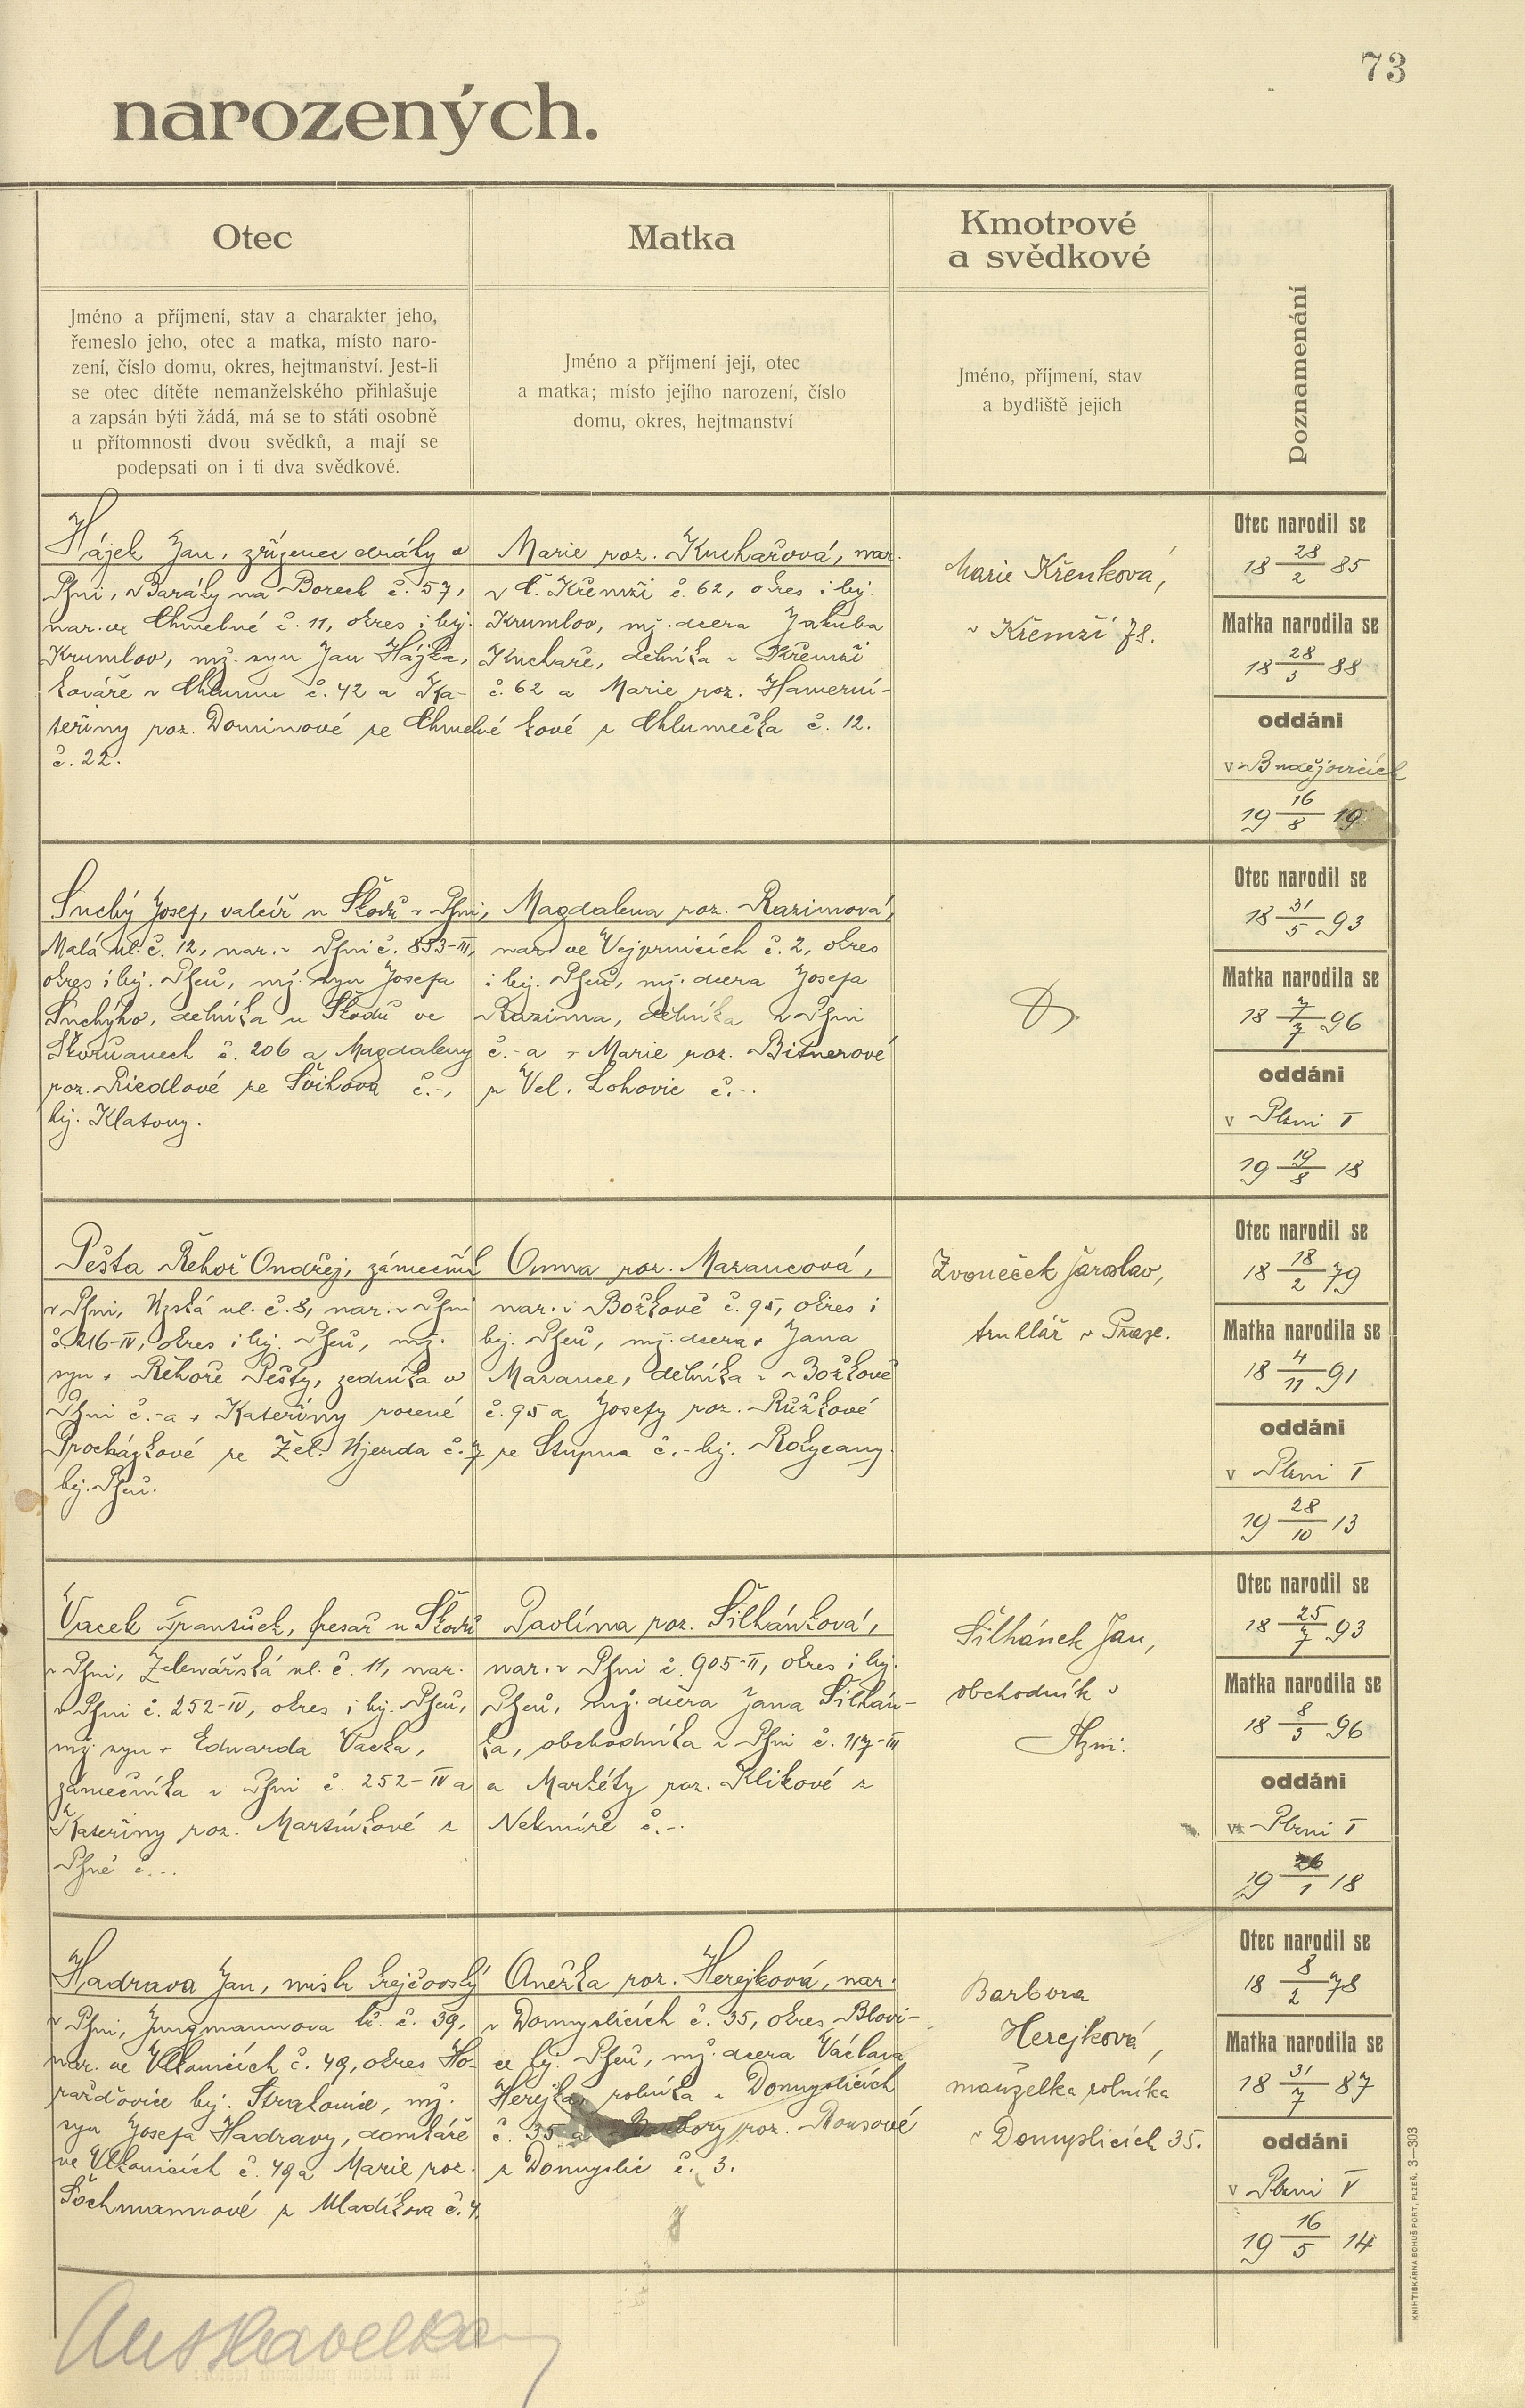 73
narozených.
Otec
Jméno a příjmení, stav a charakter jeho,
řemeslo jeho, otec a matka, místo naro-
zení, číslo domu, okres, hejtmanství. Jest-li
se otec dítěte nemanželského přihlašuje
a zapsán býti žádá, má se to státi osobně
u přítomnosti dvou svědků, a mají se
podepsati on i ti dva svědkové.
Matka
Jméno a příjmení její, otec
a matka; místo jejího narození, číslo
domu, okres, hejtmanství
Kmotrové
a svědkové
Jméno, příjmení, stav
a bydliště jejich
Poznamenání
Hájek Jan, zřízenec dráhy v
Plzni, Baráky na Borech č. 57,
nar. ve Chmelné č. 11, okres i hej.
Krumlov, mž. syn Jan Hájka,
kováře v Chlumu č. 42 a Ka-
teřiny roz. Dominové ze Chmelné
č. 22.
Marie roz. Kuchařová, nar.
v Č. Křemži č. 62, okres i hej.
Krumlov, mž. dcera Jakuba
Kuchaře, dělníka v Křemži
č. 62 a Marie roz. Hamerní-
kové z Chlumečka č. 12.
Marie Křenková,
v Křemži 78.
Otec narodil se
18 28/2 85
Matka narodila se
18 28/3 88
oddáni
v Budějovicích
19 16/8 19
Suchý Josef, valcíř u Škodů v Plzni,
Malá ul. č. 12, nar. v Plzni č. 853-III,
okres i hej. Plzeň, mž. syn Josefa
Suchýho, dělníka u Škodů ve
Skvrňanech č. 206 a Magdaleny
roz. Riedlové ze Švihova č. -,
hej. Klatovy.
Magdalena roz. Razimová,
nar. ve Vejprnicích č. 2, okres
i hej. Plzeň, mž. dcera Josefa
Razima, dělníka v Plzni
č. - a + Marie roz. Bitnerové
z Vel. Lohovic č. -.
Otec narodil se
18 31/5 93
Matka narodila se
18 7/7 96
oddáni
v Plzni I
19 19/8 18
Pešta Řehoř Ondřej, zámečník
v Plzni, Úzká ul. č. 8, nar. v Plzni
č. 216-IV, okres i hej. Plzeň, mž.
syn + Řehoře Pešty, zedníka v
Plzni č. - a + Kateřiny rozené
Procházkové ze Žel. Újezda č. 7
hej. Plzeň.
Anna roz. Marancová,
nar. v Božkově č. 95, okres i
hej. Plzeň, mž. dcera + Jana
Marance, dělníka v Božkově
č. 95 a Josefy roz. Růžkové
ze Stupna č. - hej. Rokycany.
Zvoneček Jaroslav,
truhlář v Praze.
Otec narodil se
18 18/2 79
Matka narodila se
18 4/11 91
oddáni
v Plzni I
19 28/10 13
Vacek František, fresař u Škodů
v Plzni, Zelenářská ul. č. 11, nar.
v Plzni č. 252-IV, okres i hej. Plzeň,
mž. syn + Eduarda Vacka,
zámečníka v Plzni č. 252-IV a
Kateřiny roz. Martínkové z
Plzně č. -.
Pavlína roz. Šilhánková,
nar. v Plzni č. 905-II, okres i hej.
Plzeň, mž. dcera Jana Šilhán-
ka, obchodníka v Plzni č. 117-III
a Markéty roz. Klikové z
Nekmíře č. -.
Šilhánek Jan,
obchodník v
Plzni.
Otec narodil se
18 25/7 93
Matka narodila se
18 8/3 96
oddáni
v Plzni I
19 26/1 18
Hadrava Jan, mistr krejčovský
v Plzni, Jungmannova tř. č. 39,
nar. ve Vlkonicích č. 49, okres Ho-
ražďovice hej. Strakonice, mž.
syn Josefa Hadravy, domkáře
ve Vlkonicích č. 49 a Marie roz.
z Mladíkova č. 4.
Anežka roz. Herejková, nar.
v Domyslicích č. 35, okres Blovi-
ce hej. Plzeň, mž. dcera Václava
Herejka, rolníka v Domyslicích
č. 35 a Barbory roz. Rousové
z Domyslic č. 3.
Barbora
Herejková,
manželka rolníka
v Domyslicích 35.
Otec narodil se
18 8/2 78
Matka narodila se
18 31/7 87
oddáni
v Plzni V
19 16/5 14
KNIHTISKÁRNA BOHUŠ PORT, PLZEŇ. 3—303